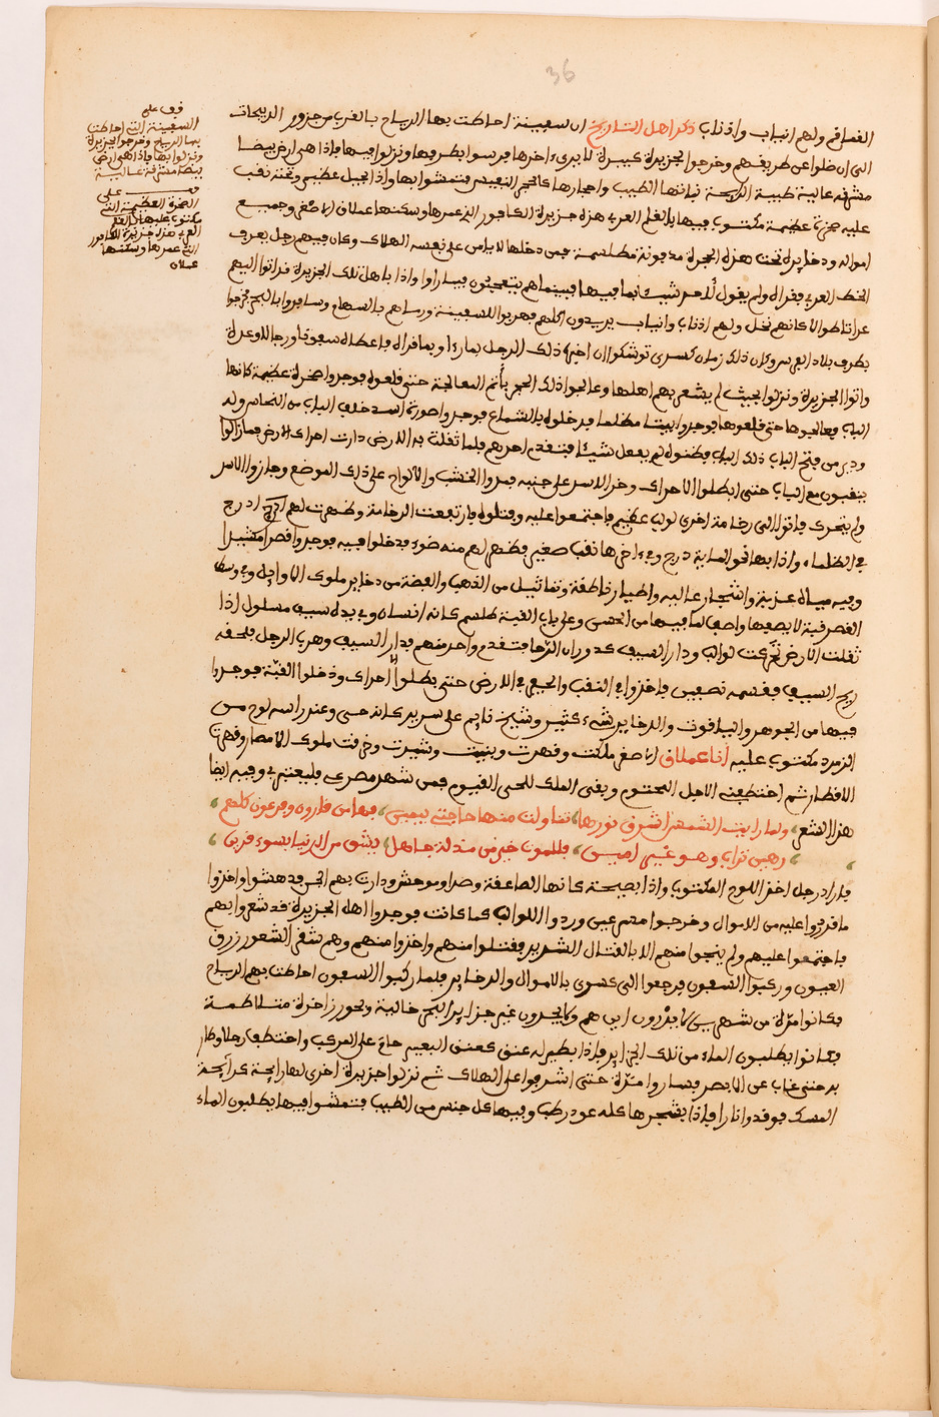 36
القماقم ولهم انياب واذناب ذكر اهل التاريخ ان سفينة احاطت بها الرياح بالقرب من جزور الدبيحات
الى ان ضلوا عن طريقهم وخرجوا لجزيرة كبيرة لا يدرى ءاخرها فرسوا بطرفها ونزلوا فيها فاذا هى ارض بيضا
مشرفه عالية طيبة الريحة نباتها الطيب واحجارها كالحجر النفيس فتمشوا بها واذا بجبل عظيم وتحته نقب
عليه صخرة عظيمة مكتوب فيها بالقلم العربى هذه جزيرة الكافور الذى عمرها وسكنها عملاق الاصغر وجميع
امواله ودخايره تحت هذه الحجرة مدفونة مطلسمة فمن دخلها لا يامن على نفسه الهلاك وكان فيهم رجل يعرف
الخط العربى فقراه ولم يقول لاحد شيئا بما فيها فبينما هم يتعجبون فيما راوا واذا باهل تلك الجزيرة قد اتوا اليهم
عراة طوالا كانهم نخل ولهم اذناب وانياب يريدون اكلهم فهربوا للسفينة ورماهم بالسهام وسافروا بالبحر فخرجوا
بطرف بلاد الفرس وكان ذلك زمان كسرى نوشروان اخبره ذلك الرجل بما راءا وبما قراه فاعطاه سفونا ورجالا وعدة
واتوا الجزيرة ونزلوا بحيث لم يشعر بهم اهلها وعالجوا ذلك الحجر بأتم المعالجة حتى قلعوه فوجدوا صخرة عظيمة كانها
الباب فعالجوها حتى قلعوها فوجدوا بيتا مظلما فدخلوه بالشماع فوجدوا صورة اسد خلف الباب من النحاس وله
ودبر من فتح الباب ذلك الباب فظنوه لم يفعل شيئا فتقدم احدهم فلما ثقلت به الارض دارت احراك الارض فمازالوا
ينقبون مع الباب حتى ابطلوا الاحراك وخر الاسد على جنبه فمدوا الخشب والالواح على ذلك الموضع وجازوا الاسد
ولم يتحرك فاتوا الى رخامة اخرى لولب عظيم فاجتمعوا عليه وفتلوه فارتفعت الرخامة وظهرت لهم ادرج
فى الظلماء واذا بها نحو الماية درج وفى ءاخرها نقب صغير فظهر لهم منه ضوء فدخلوا فيه فوجدوا قصرا مشيدا
وفيه مياه عزيزة واشجار عاليه واطيار ناطقة وتماثيل من الذهب والفضة من دخاير ملوك الاوايل وفى وسط
القصر قبة لا يصفها واصف لما فيها من الحسن وعلى باب القبة طلسم كانه انسان وفى يده سيف مسلول اذا
ثقلت الارض تحركت لوالب ودار السيف كدوران الرحا فتقدم واحد منهم فدار السيف وهرب الرجل فلحقه
ريح السيف فقسمه نصفين فاخذوا فى النقب والحفر فى الارض حتى بطلوا احراك ودخلوا القبة فوجدوا
فيها من الجوهر والياقوت والدخاير بشىء كثير وشيخ نايم على سرير كانه حى وعند راسه لوح من
الزمرد مكتوب عليه انا عملاق الاصغر ملكت وقهرت وبنيت وشيدت وخرقت ملوك الامصار وقهرت
الاقطار ثم اختطفنى الاجل المحتوم وبقى الملك للحى القيوم فمن شهر مصرى فليعتبر بى وفيه ايضا
هذا الشعر ولما رايت الشمس اشرق نورها تناولت منها حاجتى بيمينى فها من قارون وفرعون كلهم
رهين تراب وهو غير امين فللموت خير من مذلة جاهل يشق من الدنيا بسوء قرين
فاراد رجل اخذ اللوح المكتوب واذا بصيحة كانها الصاعقة وصراو موحش ودارت بهم الجن فدهشوا واخذوا
ما قدروا عليه من الاموال وخرجوا مسرعين وردوا اللوالب كما كانت فوجدوا اهل الجزيرة قد شعروا بهم
فاجتمعوا عليهم ولم ينجوا منهم الا بالقتال الشديد فقتلوا منهم واخذوا منهم وهم شقر الشعور زرق
العيون وركبوا السفون فرجعوا الى كسرى بالاموال والدخاير فلما ركبوا السفون احاطت بهم الرياح
فكانوا مدة من شهرين لا يدرون اين هم ولا يجدون غير جزاير البحر خالية وبحور زاخرة متلاطمة
فكانوا يطلبون الماء من تلك الجزاير فاذا بطير له عنق كعنق البعير حام على المركب واختطف رجلا وطار
به حتى غاب عن الابصر فساروا مدة حتى اشرفوا على الهلاك ثم نزلوا جزيرة اخرى لها رايحة كرايحة
المسك فوقدوا نارا فاذا بشجرها كله عود رطب وفيها كل جنس من الطيب فتمشوا فيها يطلبون الماء
قف على
السفينة التى احاطت
بها الرياح وخرجوا لجزيرة
ونزلوا بها فاذا هى ارض
بيضا مشرفة عالية
وقف على
الصخرة العظيمة التى
مكتوب عليها بالقلم
العربى هذه جزيرة الكافور
الذى عمرها وسكنها
عملاق